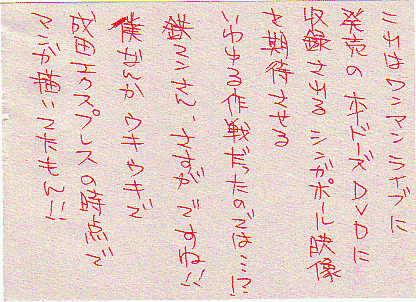 これはワンマンライブに
発売のホドーズDVDに
収録されるシンガポール映像
を期待させる
いわゆる作戦だったのでは…!?
鉄マンさん、さすがですね!!
僕なんかウキウキで
成田エクスプレスの時点で
マンガ描いてたもん!!